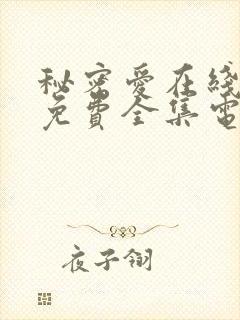 秘密愛在綫
免費全集電
夜子翎